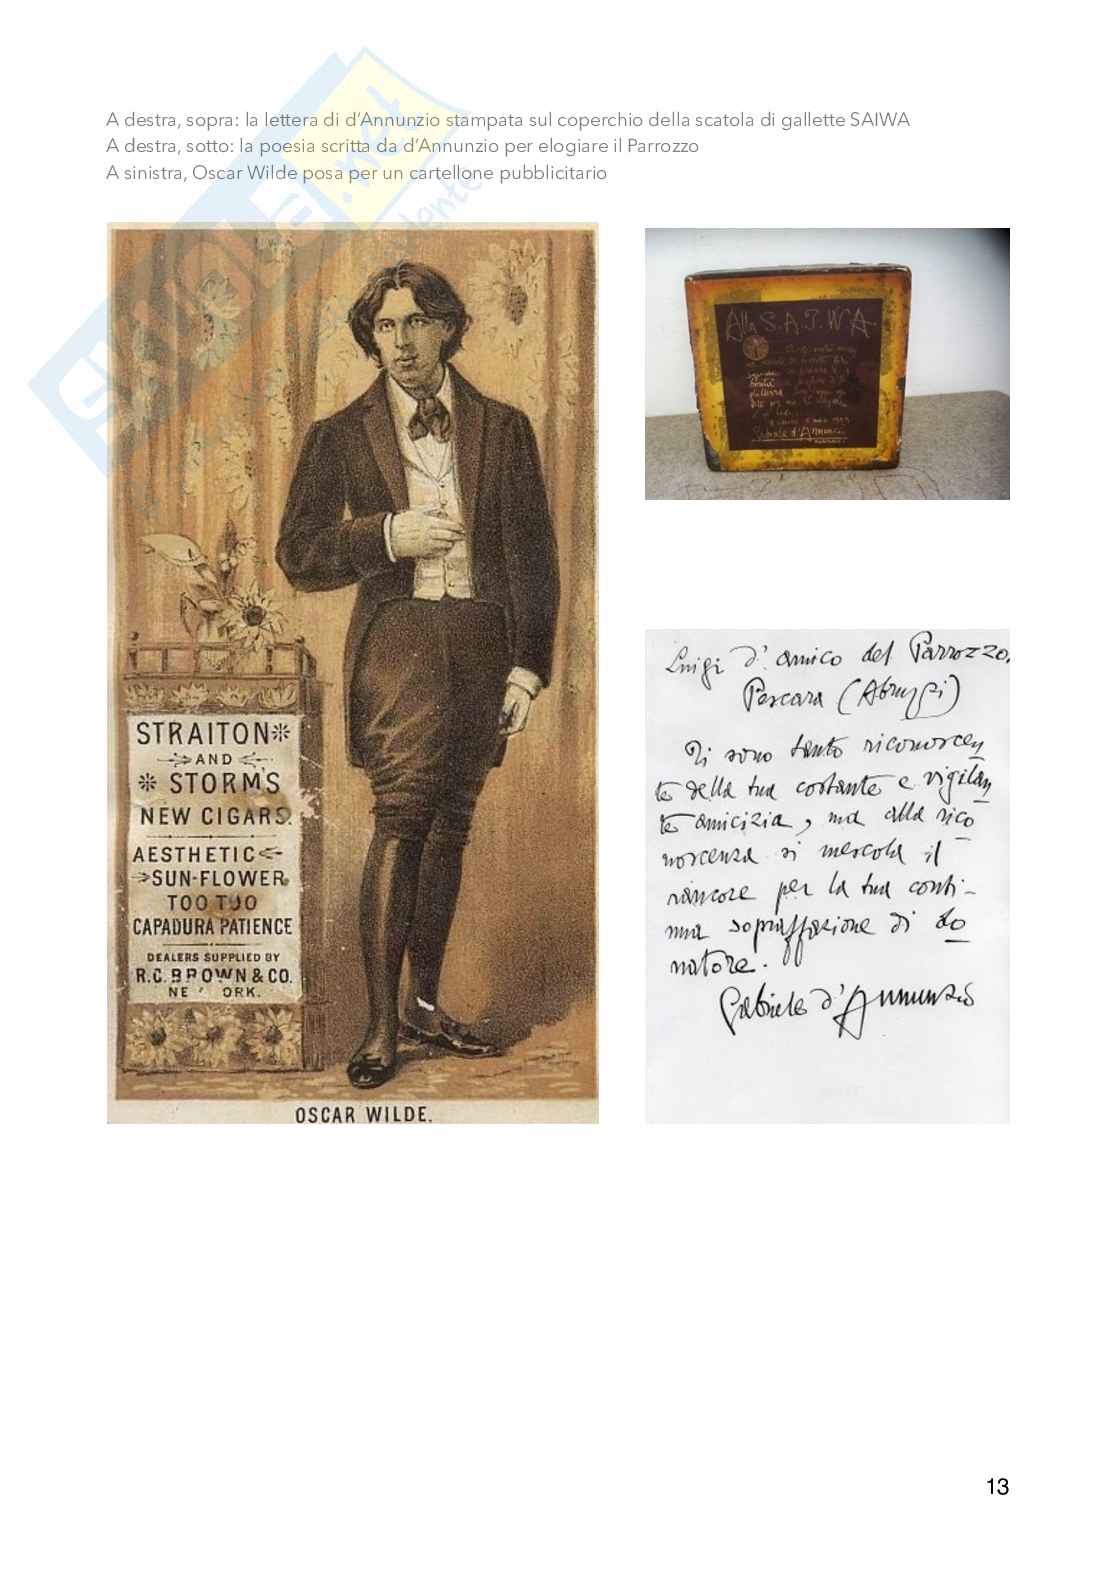 A destra, sopra: la lettera di d'Annunzio stampata sul coperchio della scatola di gallette SAIWA
A destra, sotto: la poesia scritta da d'Annunzio per elogiare il Parrozzo
A sinistra, Oscar Wilde posa per un cartellone pubblicitario
SKUOLA.net
STRAITON
AND
STORM'S
NEW CIGARS.
AESTHETIC
SUN-FLOWER
TOO TOO
CAPADURA PATIENCE
DEALERS SUPPLIED BY
R.C. BROWN & CO.
NE ORK.
OSCAR WILDE.
Alla S.A.I.W.A.
Gabriele d'Annunzio
Luigi d'amico del Parrozzo.
Pescara (Abruzzi)
Ti sono tanto riconoscen
te della tua costante e vigilan
te amicizia, ma alla rico
noscenza si mescola il
rancore per la tua conti-
nua sopraffazione di do
natore.
Gabriele d'Annunzio
13